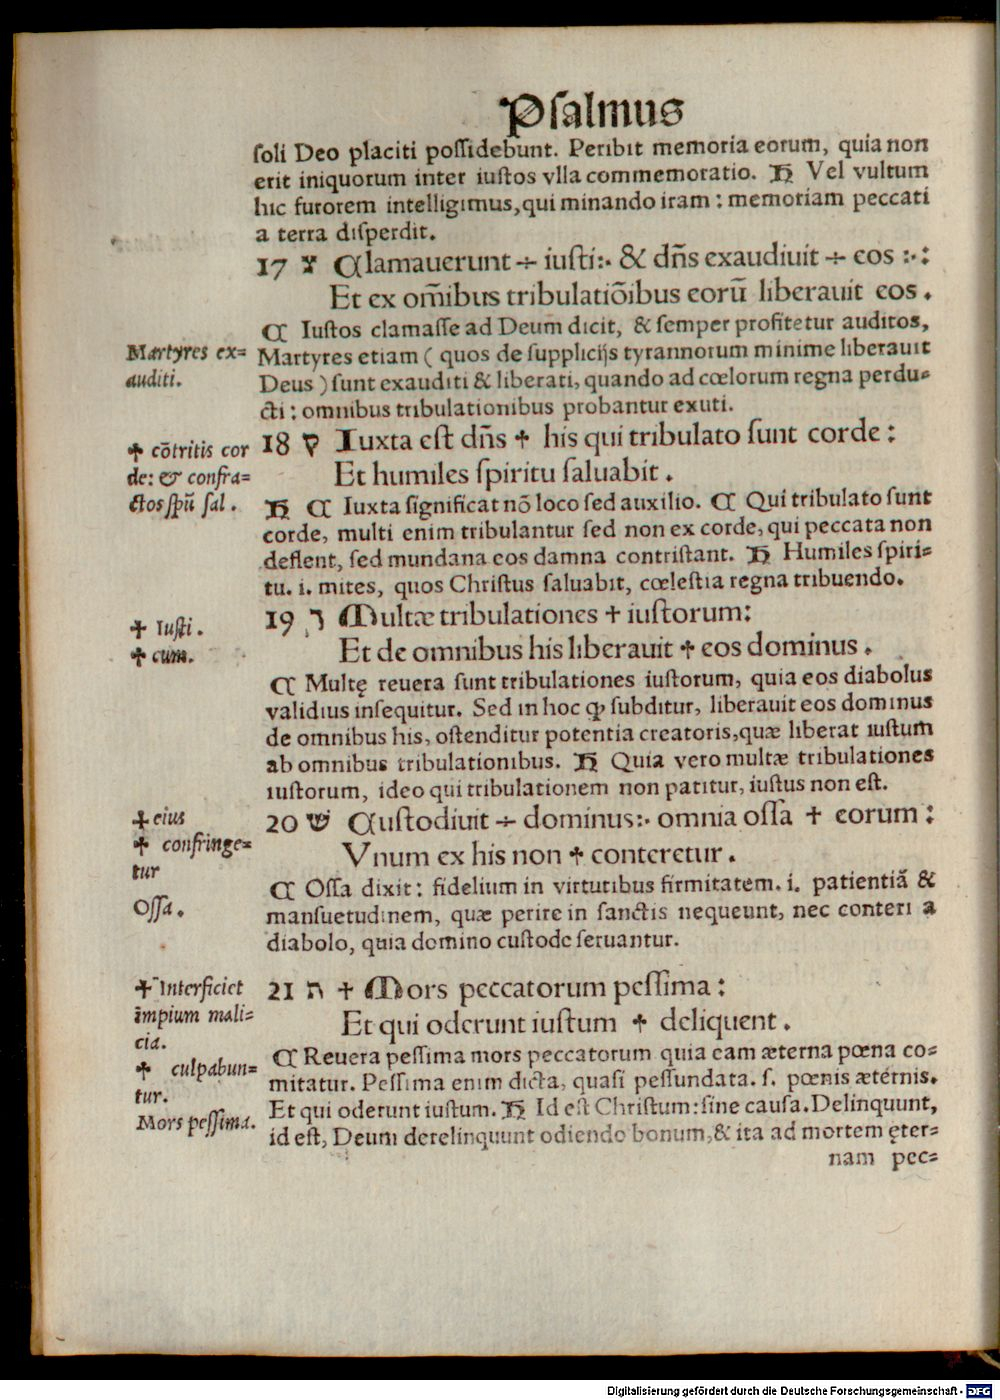 Psalmus
soli Deo placiti possidebunt. Peribit memoria eorum, quia non
erit iniquorum inter iustos vlla commemoratio. H Vel vultum
hic furorem intelligimus, qui minando iram : memoriam peccati
a terra disperdit.
17 צ Clamauerunt ÷ iusti:· & dñs exaudiuit ÷ eos :·:
Et ex om̄ibus tribulatiōibus eorū liberauit eos .
C Iustos clamasse ad Deum dicit, & semper profitetur auditos,
Martyres ex=
auditi.
Martyres etiam ( quos de supplicijs tyrannorum minime liberauit
Deus ) sunt exauditi & liberati, quando ad cœlorum regna perdu=
cti : omnibus tribulationibus probantur exuti.
✝ cōtritis cor
de: & confra=
ctos spū sal .
18 ק Iuxta est dñs ✝ his qui tribulato sunt corde :
Et humiles spiritu saluabit .
H C Iuxta significat nō loco sed auxilio. C Qui tribulato sunt
corde, multi enim tribulantur sed non ex corde, qui peccata non
deflent, sed mundana eos damna contristant. H Humiles spiri=
tu. i. mites, quos Christus saluabit, cœlestia regna tribuendo.
✝ Iusti .
✝ cum.
19 ר Multæ tribulationes ✝ iustorum:
Et de omnibus his liberauit ✝ eos dominus .
C Multę reuera sunt tribulationes iustorum, quia eos diabolus
validius insequitur. Sed in hoc ꝙ subditur, liberauit eos dominus
de omnibus his, ostenditur potentia creatoris, quæ liberat iustum
ab omnibus tribulationibus. H Quia vero multæ tribulationes
iustorum, ideo qui tribulationem non patitur, iustus non est.
✝ eius
✝ confringe=
tur
Ossa .
20 ש Custodiuit ÷ dominus:· omnia ossa ✝ eorum :
Vnum ex his non ✝ conteretur .
C Ossa dixit : fidelium in virtutibus firmitatem. i. patientiā &
mansuetudinem, quæ perire in sanctis nequeunt, nec conteri a
diabolo, quia domino custode seruantur.
✝ Interficiet
impium mali=
cia.
✝ culpabun=
tur.
Mors pessima.
21 ת ✝ Mors peccatorum pessima :
Et qui oderunt iustum ✝ deliquent .
C Reuera pessima mors peccatorum quia eam æterna pœna co=
mitatur. Pessima enim dicta, quasi pessundata. s. pœnis æternis.
Et qui oderunt iustum. H Id est Christum : sine causa. Delinquunt,
id est, Deum derelinquunt odiendo bonum, & ita ad mortem ęter=
nam pec=
Digitalisierung gefördert durch die Deutsche Forschungsgemeinschaft - DFG